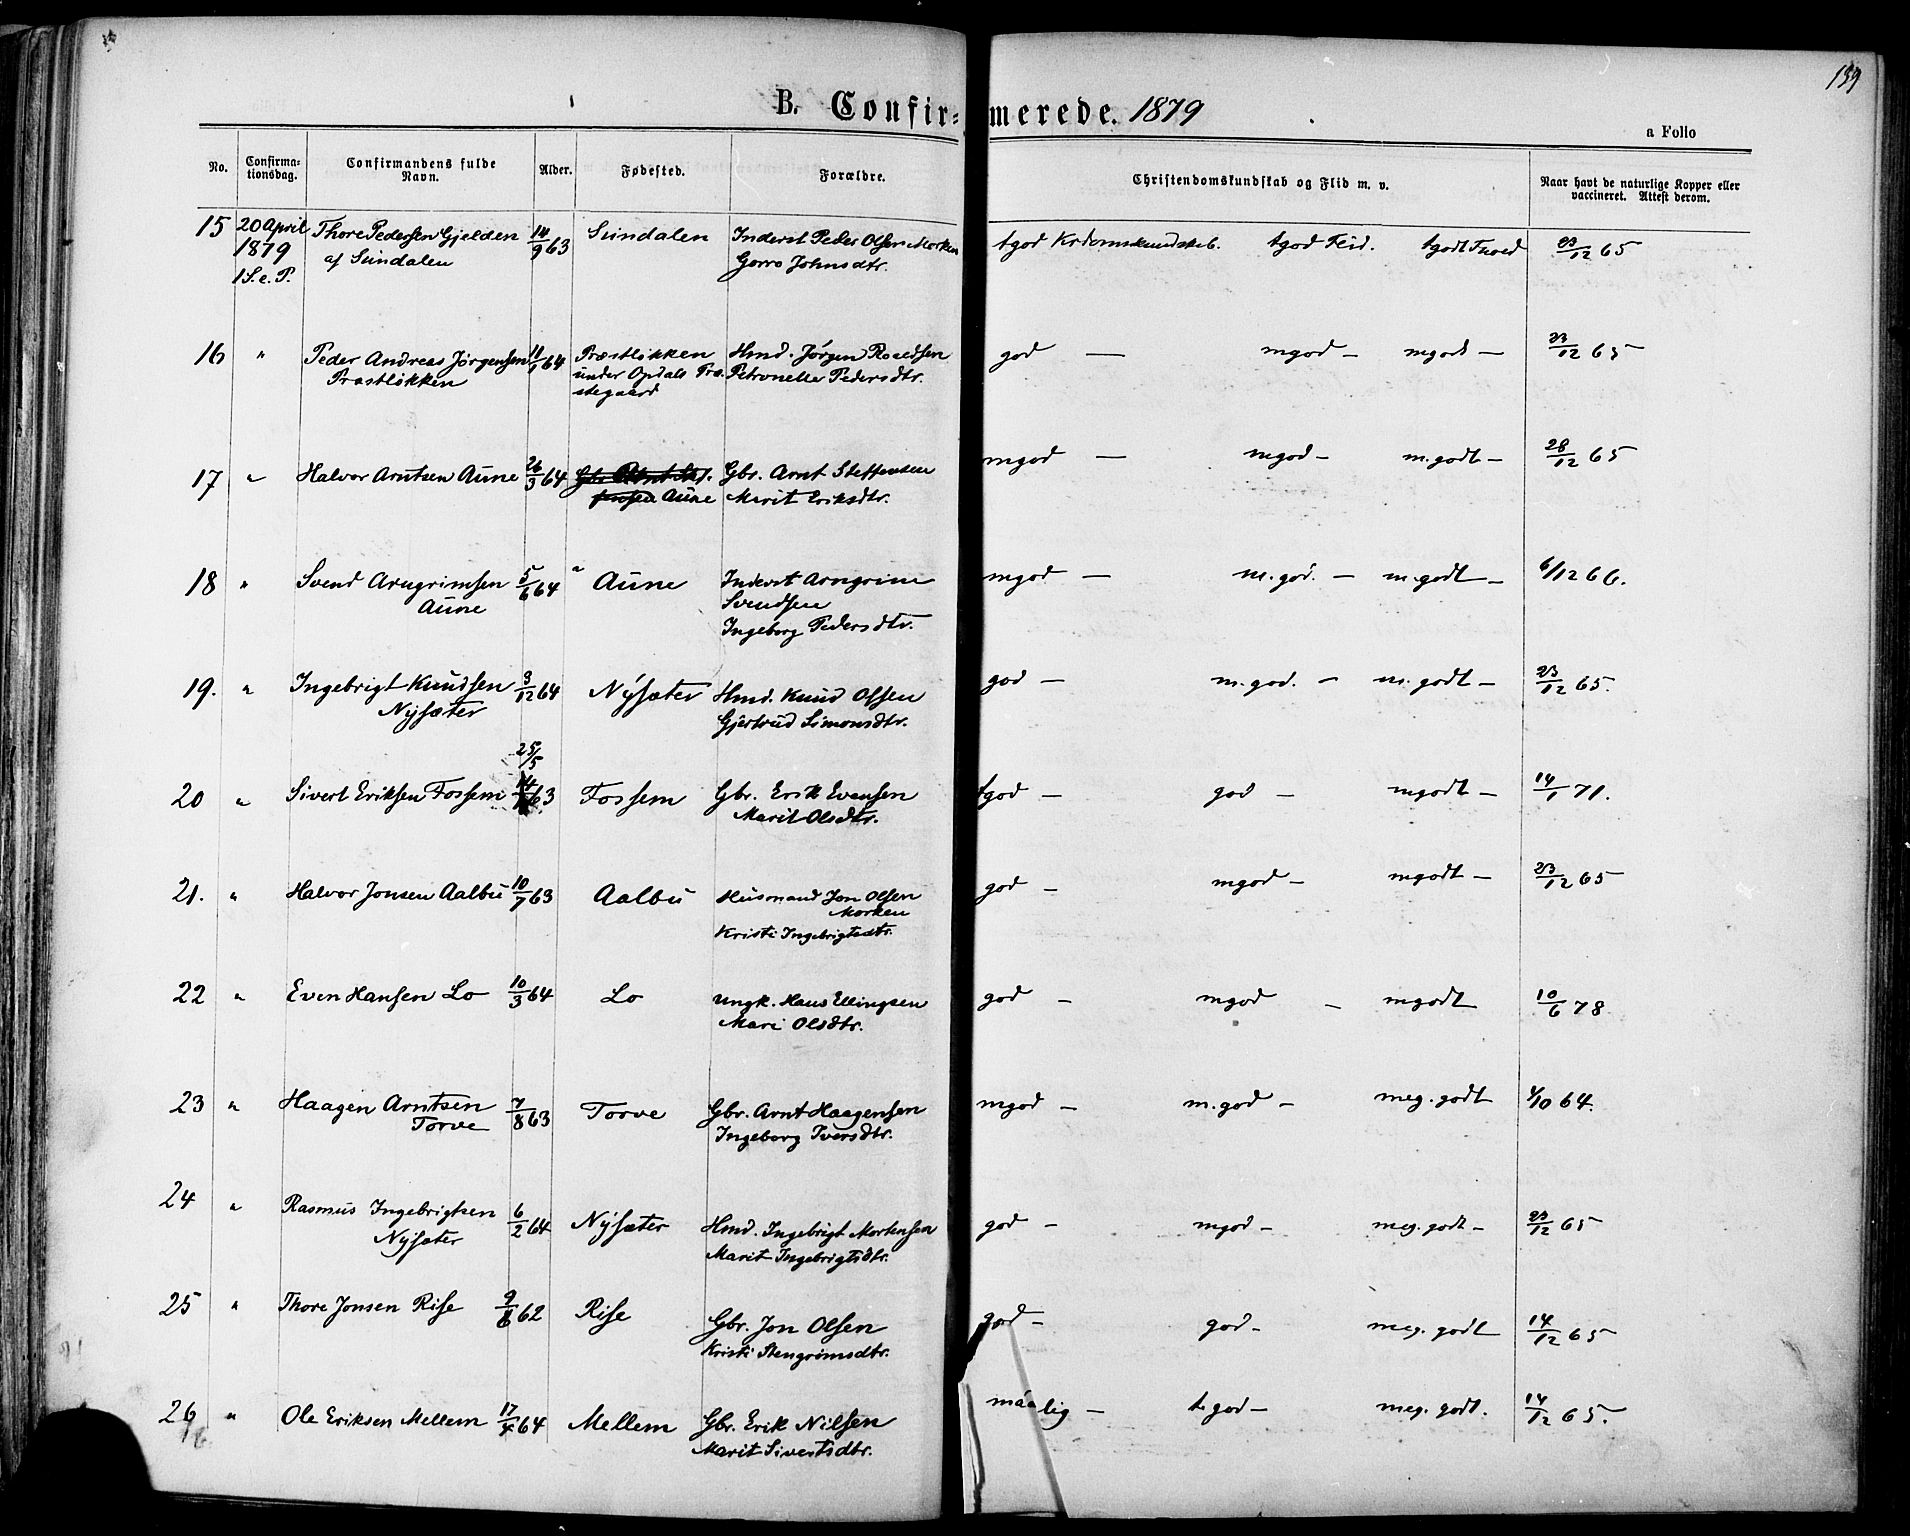 139
B. Confir= merede. 1879
a Folio
No. Confirma= tionsdag. Confirmandens fulde Navn. Alder. Fødested. Forældre. Christendomskundskab og Flid m. v. Naar havt de naturlige Kopper eller vaccineret. Attest derom.
15 20 April Thore Pedersen Gjelden 14/9 63 Sundalen Inderst Peder Olsen Morken tgod Krdomskundskab. tgod Flid. tgodt Forhold 23/12 65
1879 af Sundalen Gorro Johnsdtr.
1 S. e. P.
16 " Peder Andreas Jørgensen 11/1 64 Præstløkken Hmd. Jørgen Roaldsen god — mgod — mgodt — 23/12 65
Præstløkken under Opdals Præ Petronelle Pedersdtr.
stegaard
17 " Halvor Arntsen Aune 26/3 64 Gbr. Arnt Steffensen mgod — mgod — m.godt — 28/12 65
Aune Marit Eriksdtr.
18 " Svend Arngrimsen 5/6 64 " Aune Inderst Arngrim mgod — m.god. — m.godt — 6/12 66.
Aune Svendsen
Ingeborg Pedersdtr.
19. " Ingebrigt Knudsen 3/12 64 Nysæter Hmd. Knud Olsen god — m.god. — m.godt — 23/12 65.
Nysæter Gjertrud Simonsdtr.
25/5
20 " Sivert Eriksen Fossem 63 Fossem Gbr. Erik Evensen tgod — god — mgodt — 14/1 71.
Marit Olsdtr.
21. " Halvor Jonsen Aalbu 10/7 63 Aalbu Husmand Jon Olsen god — mgod — mgodt — 23/12 65
Morken
Kristi Ingebrigtsdtr.
22 " Even Hansen Lo 10/3 64 Lo Ungk. Hans Ellingsen god — mgod — mgodt 10/6 78
Mari Olsdtr.
23 " Haagen Arntsen 7/8 63 Torve Gbr. Arnt Haagensen mgod — m.god — meg. godt /10 64.
Torve Ingeborg Iversdtr.
24 " Rasmus Ingebrigtsen 6/2 64 Nysæter Hmd. Ingebrigt Mortensen god — mgod — meg. godt — 23/12 65
Nysæter Marit Ingebrigtsdtr.
25 " Thore Jonsen Rise 9/6 62 Rise Gbr. Jon Olsen god — god — meg. godt 14/12 65
Kristi Stengrimsdtr.
26 " Ole Eriksen Mellem 17/4 64 Mellem Gbr. Erik Nilsen maalig — t.god — meg. godt. 14/12 65.
Marit Sivertsdtr.